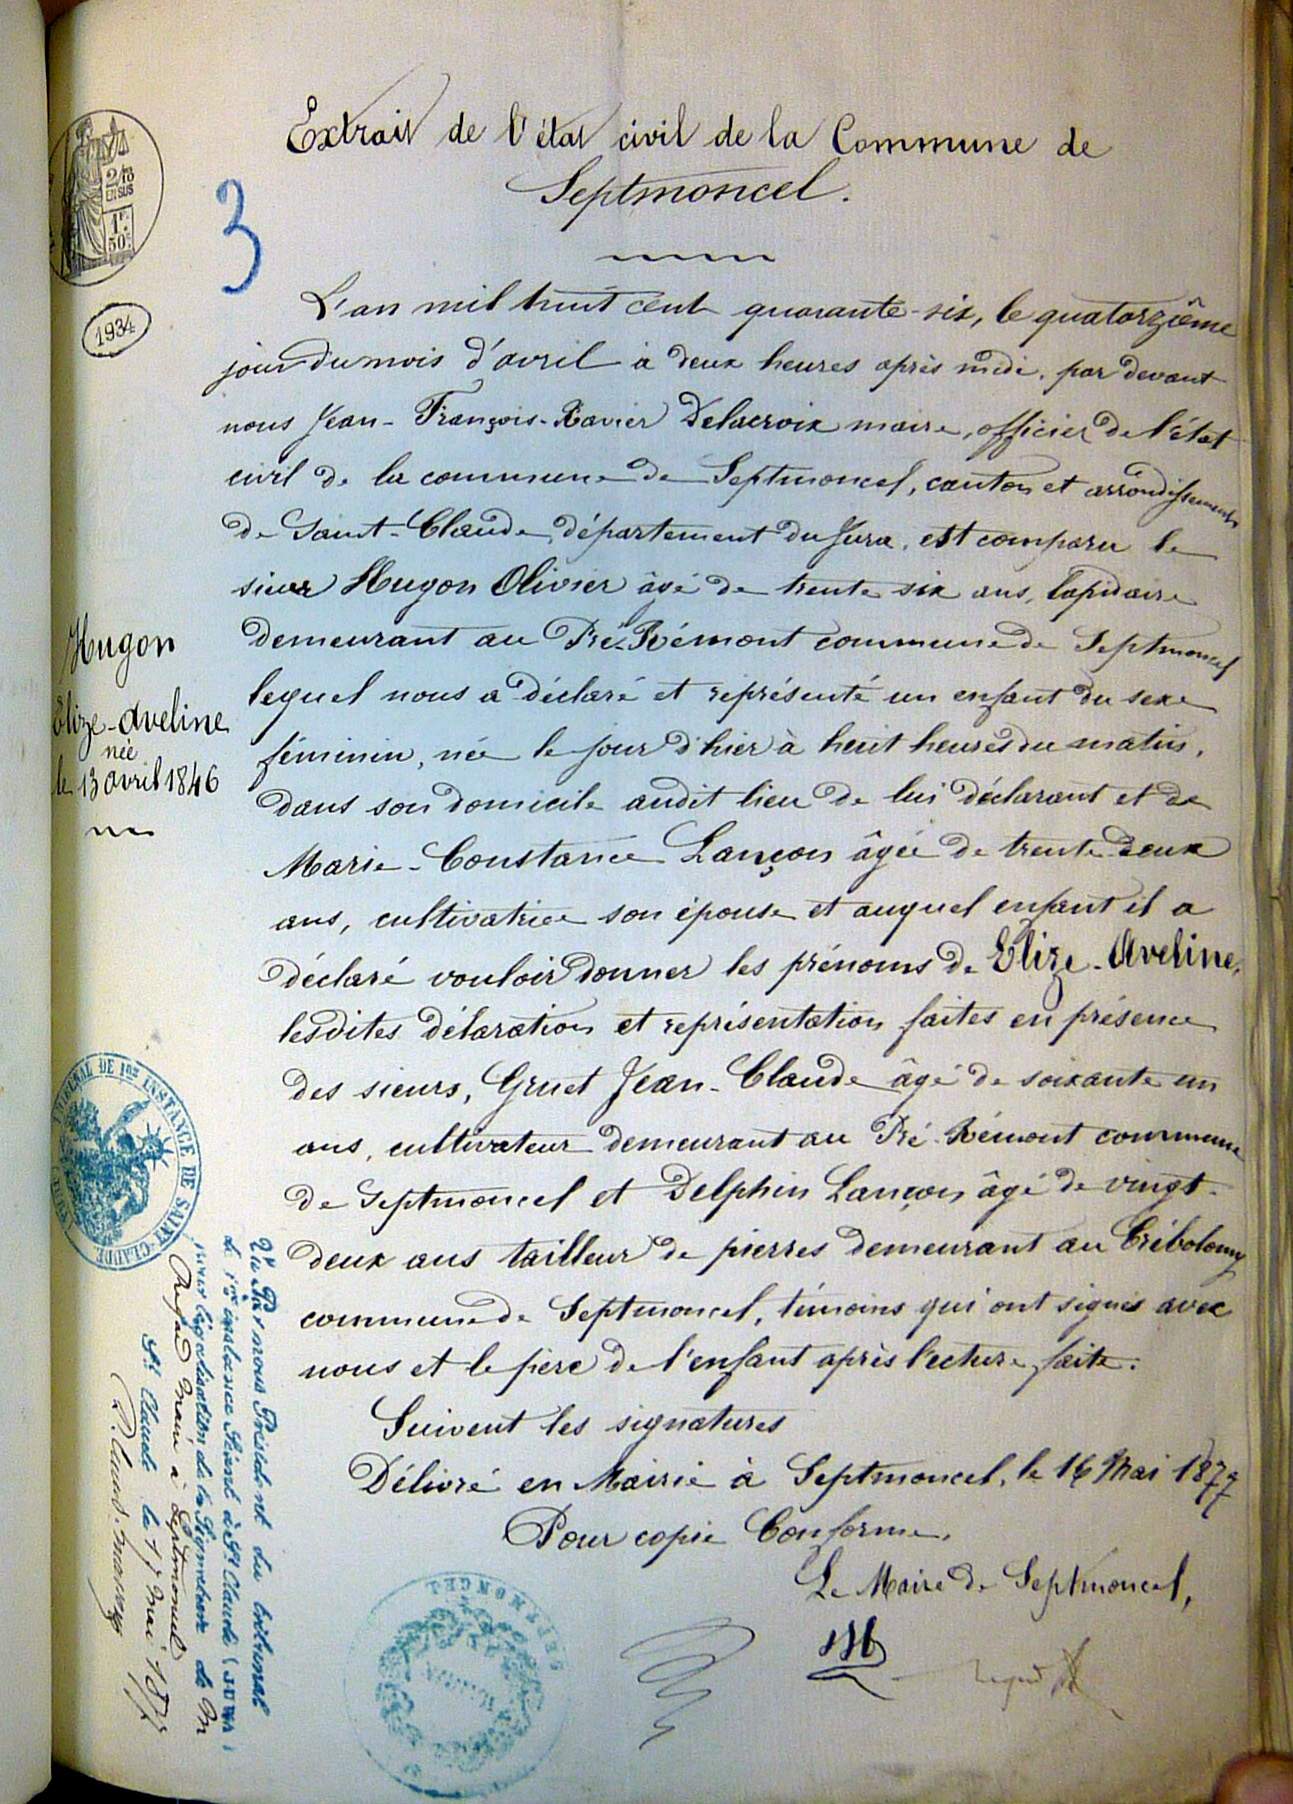 Extrait de l'état civil de la Commune de
Septmoncel.
2/10
EN SUS
1F
50c
3
1934
L'an mil huit cent quarante-six, le quatorzième
jour du mois d'avril à deux heures après midi, par devant
nous Jean-François-Xavier Delacroix maire, officier de l'état
civil de la commune de Septmoncel, canton et arrondissement
de Saint-Claude, département du Jura, est comparu le
sieur Hugon Olivier âgé de trente six ans, lapidaire
demeurant au Pré-Rémont commune de Septmoncel
lequel nous a déclaré et représenté un enfant du sexe
féminin, née le jour d'hier à heuit heures du matin,
dans son domicile audit lieu de lui déclarant et de
Marie-Constance Lançon âgée de trente-deux
ans, cultivatrice son épouse et auquel enfant il a
déclaré vouloir donner les prénoms de Elize-Aveline,
lesdites délaration et représentation faites en présence
des sieurs, Gruet Jean-Claude âgé de soixante un
ans, cultivateur demeurant au Pré-Rémont commune
de Septmoncel et Delphin Lançon âgé de vingt-
deux ans tailleur de pierres demeurant au Crébolomy
commune de Septmoncel, témoins qui ont signés avec
nous et le père de l'enfant après lecture faite.
Suivent les signatures
Délivré en Mairie à Septmoncel, le 16 Mai 1877
Pour copie Conforme,
Le Maire de Septmoncel,
Hugon
Elize-Aveline
née
le 13 avril 1846
TRIBUNAL DE 1ère INSTANCE DE SAINT-CLAUDE (JURA)
Vu Par nous Président du tribunal
de 1ère instance Séant à St Claude (JURA)
pour légalisation de la Signature de M
Regad Maire à Septmoncel
St Claude le 17 Mai 1877
SEPTMONCEL
MAIRIE